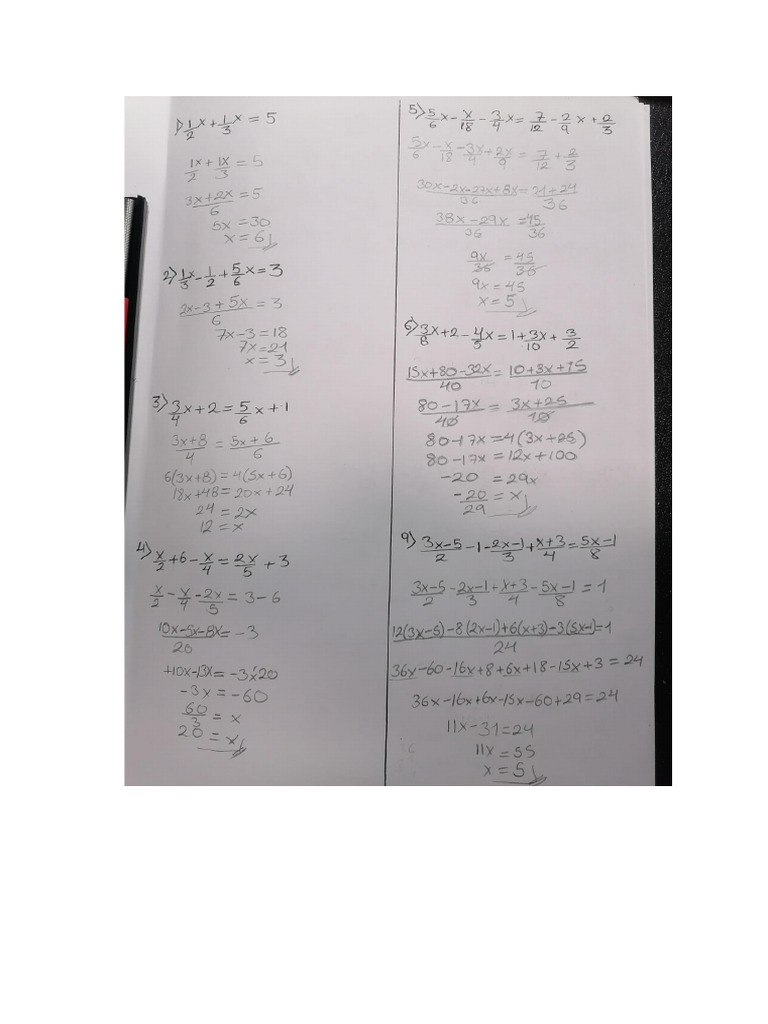 1) 1/2 x + 1/3 x = 5
1x/2 + 1x/3 = 5
3x+2x/6 = 5
5x = 30
x = 6
2) 1/3 x - 1/2 + 5/6 x = 3
2x-3+5x/6 = 3
7x-3 = 18
7x = 21
x = 3
3) 3/4 x + 2 = 5/6 x + 1
3x+8/4 = 5x+6/6
6(3x+8) = 4(5x+6)
18x+48 = 20x+24
24 = 2x
12 = x
4) x/2 + 6 - x/4 = 2x/5 + 3
x/2 - x/4 - 2x/5 = 3-6
10x-5x-8x/20 = -3
+10x-13x = -3x20
-3x = -60
60/3 = x
20 = x
5) 5/6 x - x/18 - 3/4 x = 7/12 - 2/9 x + 2/3
5x/6 - x/18 - 3x/4 + 2x/9 = 7/12 + 2/3
30x-2x-27x+8x/36 = 21+24/36
38x-29x/36 = 45/36
9x/36 = 45/36
9x = 45
x = 5
6) 3/8 x + 2 - 4/5 x = 1 + 3x/10 + 3/2
15x+80-32x/40 = 10+3x+15/10
80-17x/40 = 3x+25/10
80-17x = 4(3x+25)
80-17x = 12x+100
-20 = 29x
-20/29 = x
9) 3x-5/2 - 1 - 2x-1/3 + x+3/4 = 5x-1/8
3x-5/2 - 2x-1/3 + x+3/4 - 5x-1/8 = 1
12(3x-5)-8(2x-1)+6(x+3)-3(5x-1)/24 = 1
36x-60-16x+8+6x+18-15x+3 = 24
36x-16x+6x-15x-60+29 = 24
11x-31 = 24
11x = 55
x = 5